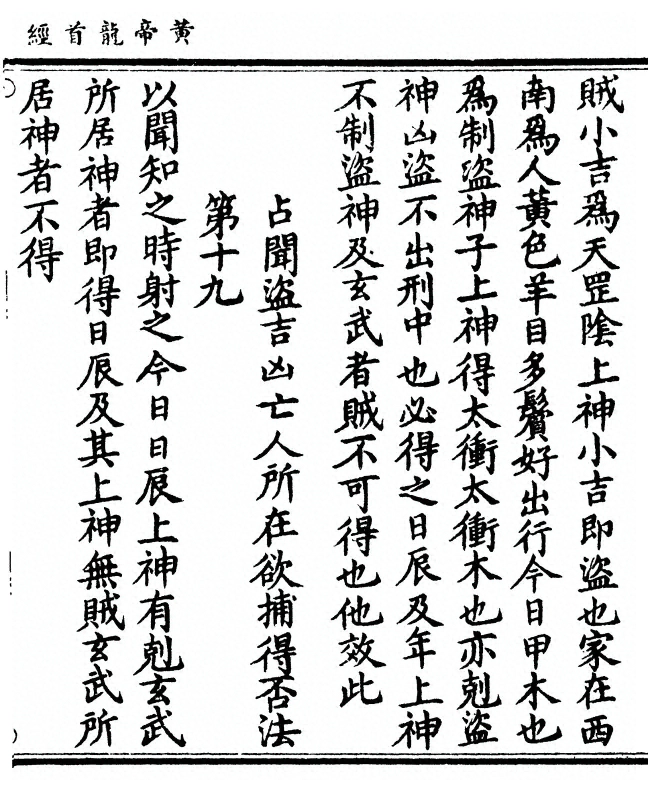 黃帝龍首經
賊小吉爲天罡陰上神小吉即盜也家在西
南爲人黃色羊目多鬢好出行今日甲木也
爲制盜神子上神得太衝太衝木也亦剋盜
神凶盜不出刑中也必得之日辰及年上神
不制盜神及玄武者賊不可得也他效此
占聞盜吉凶亡人所在欲捕得否法
第十九
以聞知之時射之今日日辰上神有剋玄武
所居神者即得日辰及其上神無賊玄武所
居神者不得